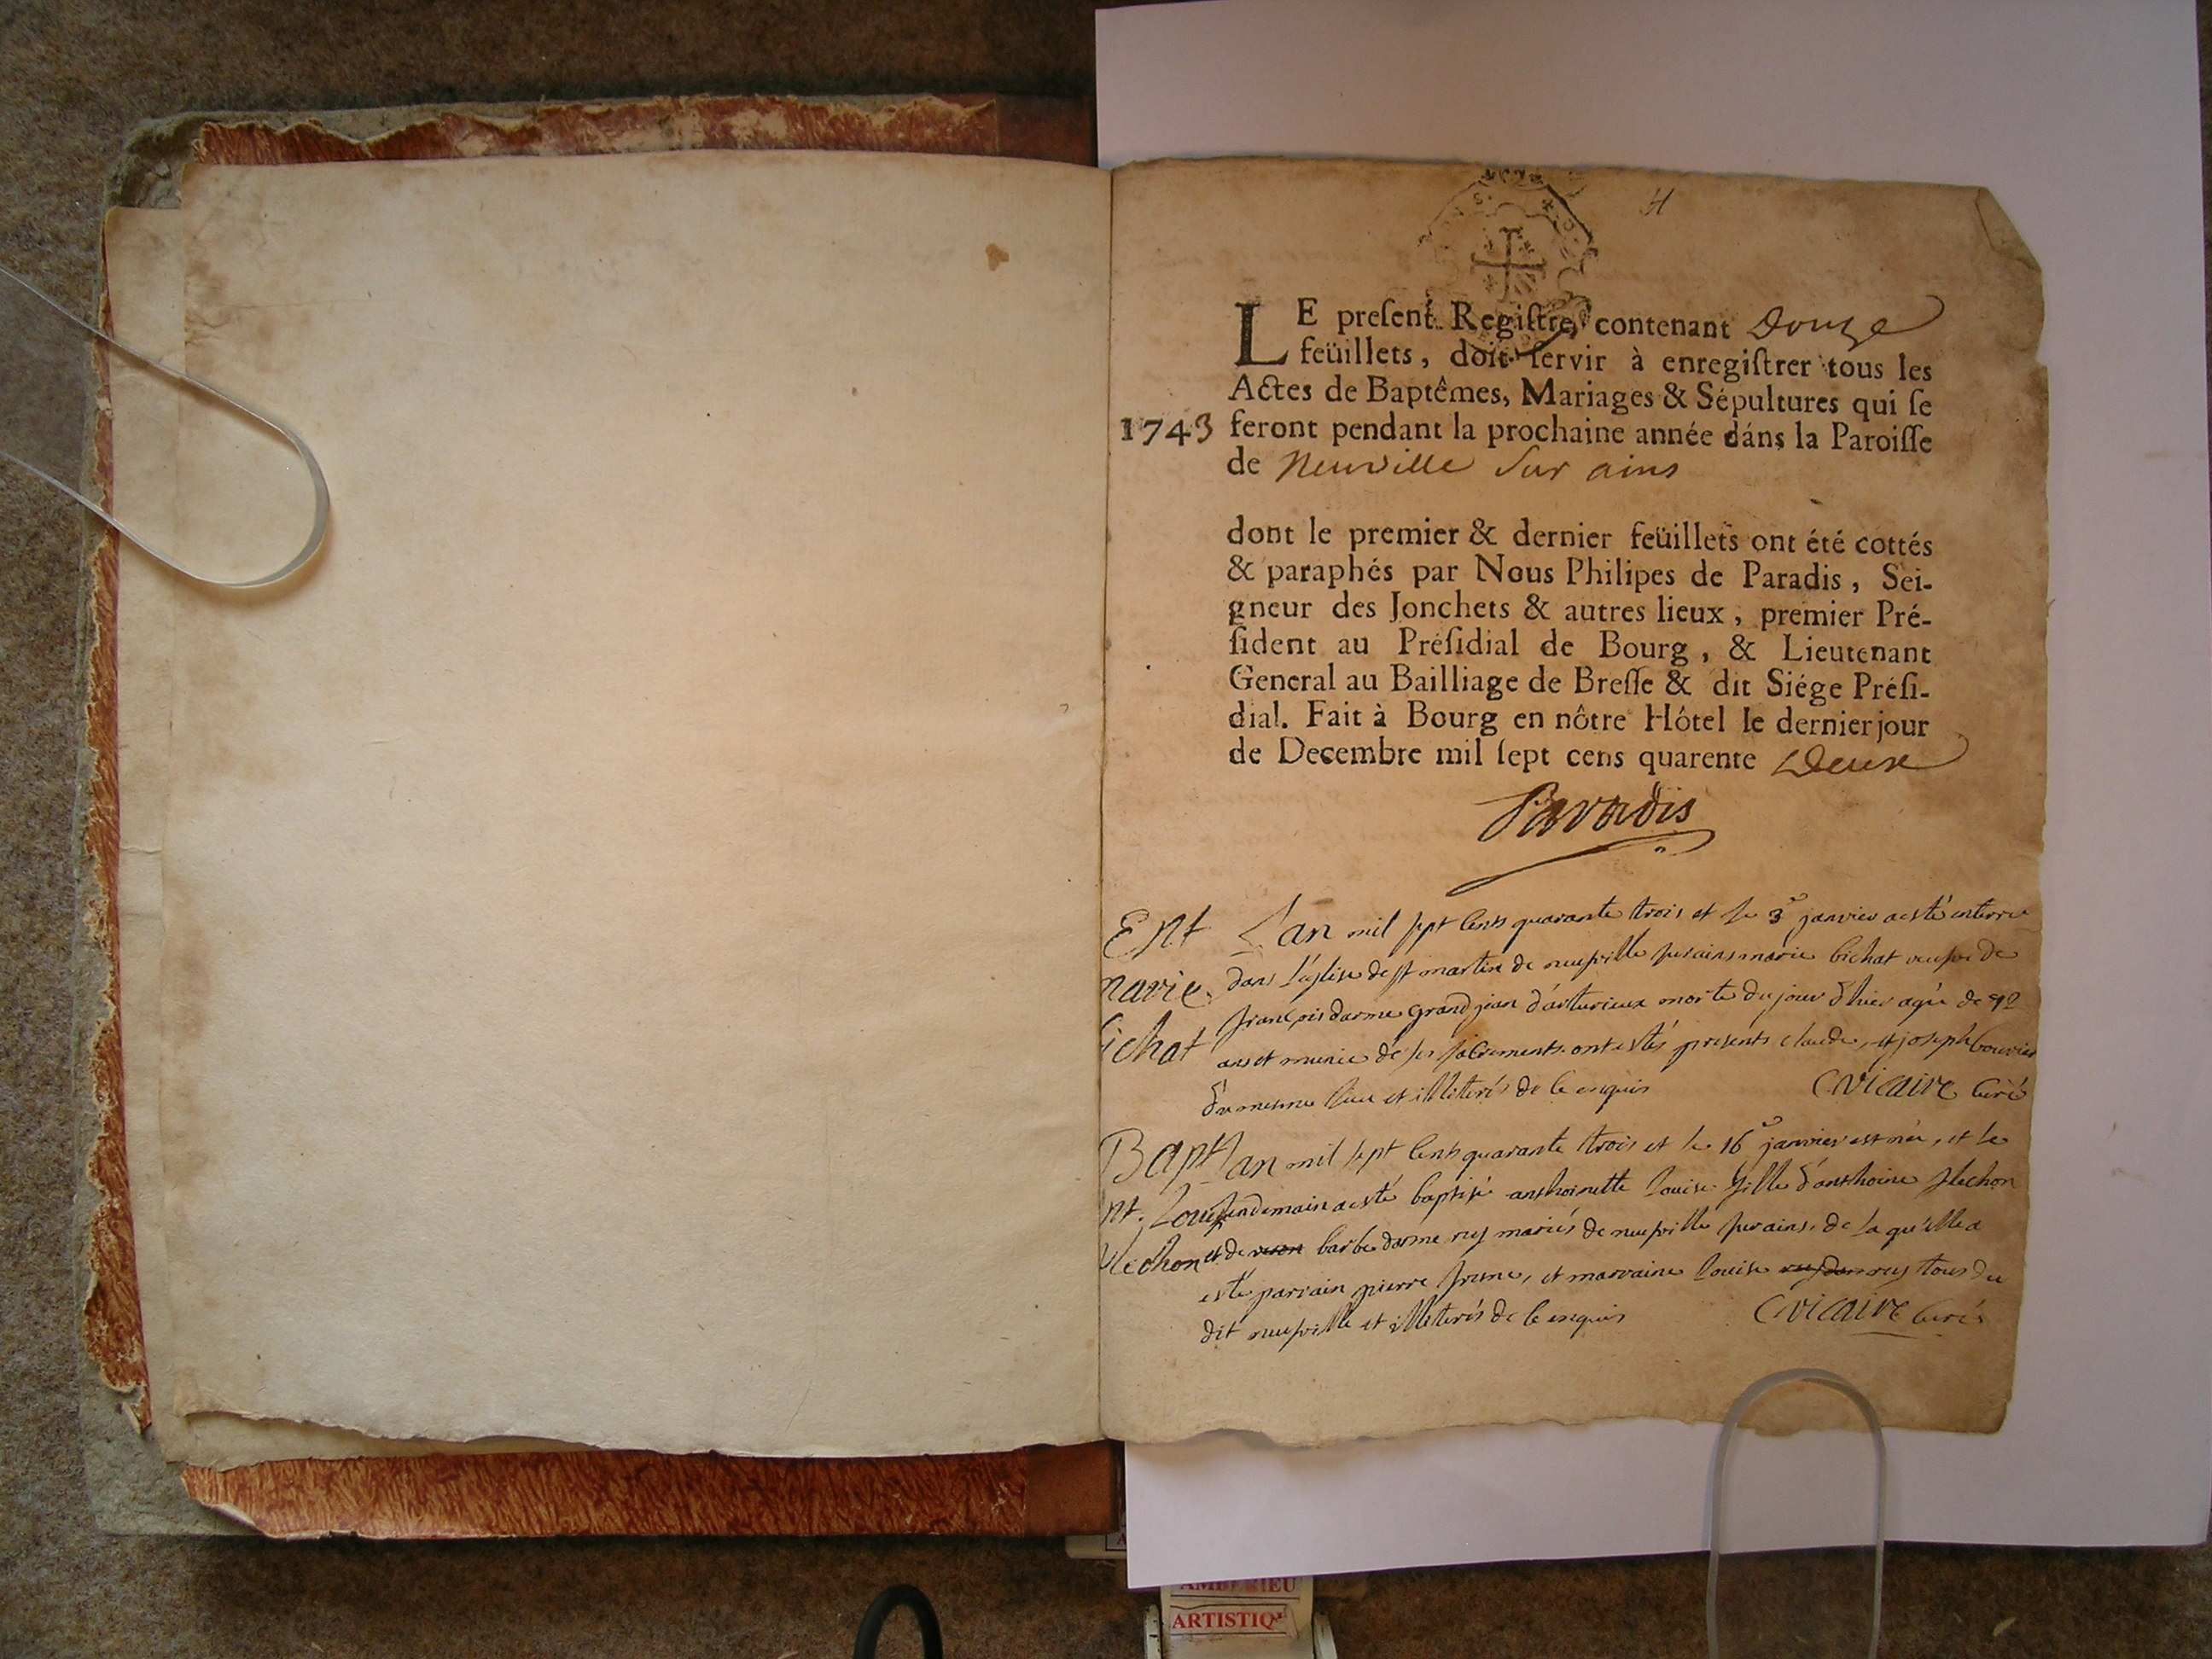 LE preſent Regiſtre contenant Douze
feüillets, doit ſervir à enregiſtrer tous les
Actes de Baptêmes, Mariages & Sépultures qui ſe
1743 feront pendant la prochaine année dans la Paroiſſe
de Neuville sur ains
dont le premier & dernier feüillets ont été cottés
& paraphés par Nous Philipes de Paradis, Sei-
gneur des Jonchets & autres lieux, premier Pré-
ſident au Préſidial de Bourg, & Lieutenant
General au Bailliage de Breſſe & dit Siége Préſi-
dial. Fait à Bourg en nôtre Hôtel le dernier jour
de Decembre mil ſept cens quarente Deux
Paradis
Ent L'an mil sept cents quarante trois et le 3e janvier a esté enterré
dans l'eglise de st martin de neufville sur ains marie bichat veufve de
marie françois darme grandjean d'arturieux morte du jour d'hier agée de 92
ichat ans et munie de ses sacrements. ont estés presents claude, et joseph bouvier
du mesme lieu et illiterés de ce enquis Cvicaire curé
Bapt L'an mil sept cents quarante trois et le 16e janvier est née, et le
nt. Louise lendemain a esté baptisé anthoinette louise fille d'anthoine flechon
flechon et de barbe darme rey mariés de neufville sur ains. de la qu'elle a
esté parrain pierre fresne, et marraine louise rey tous du
dit neufville et illiterés de ce enquis Cvicaire curé
AMBERIEU
ARTISTIQ